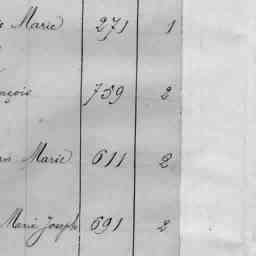 Marie 271 1
nçois 759 2
Marie 611 2
Marie Joseph 691 2